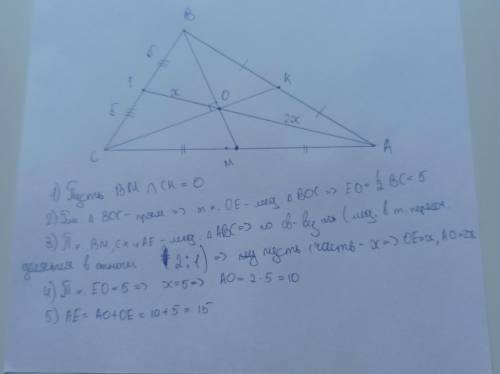 B
5
5
x
O
K
2x
C
M
A
1) Пусть BM ∩ CK = O
2) △ BOC - прям => т.к. OE - мед. △ BOC => EO = 1/2 BC = 5
3) Т.к. BM, CK и AE - мед. △ ABC => по св-ву (мед. в т. перес.
делятся в 2:1) => пусть 1 часть - x => OE = x, AO = 2x
4) Т.к. EO = 5 => x = 5 => AO = 2 · 5 = 10
5) AE = AO + OE = 10 + 5 = 15